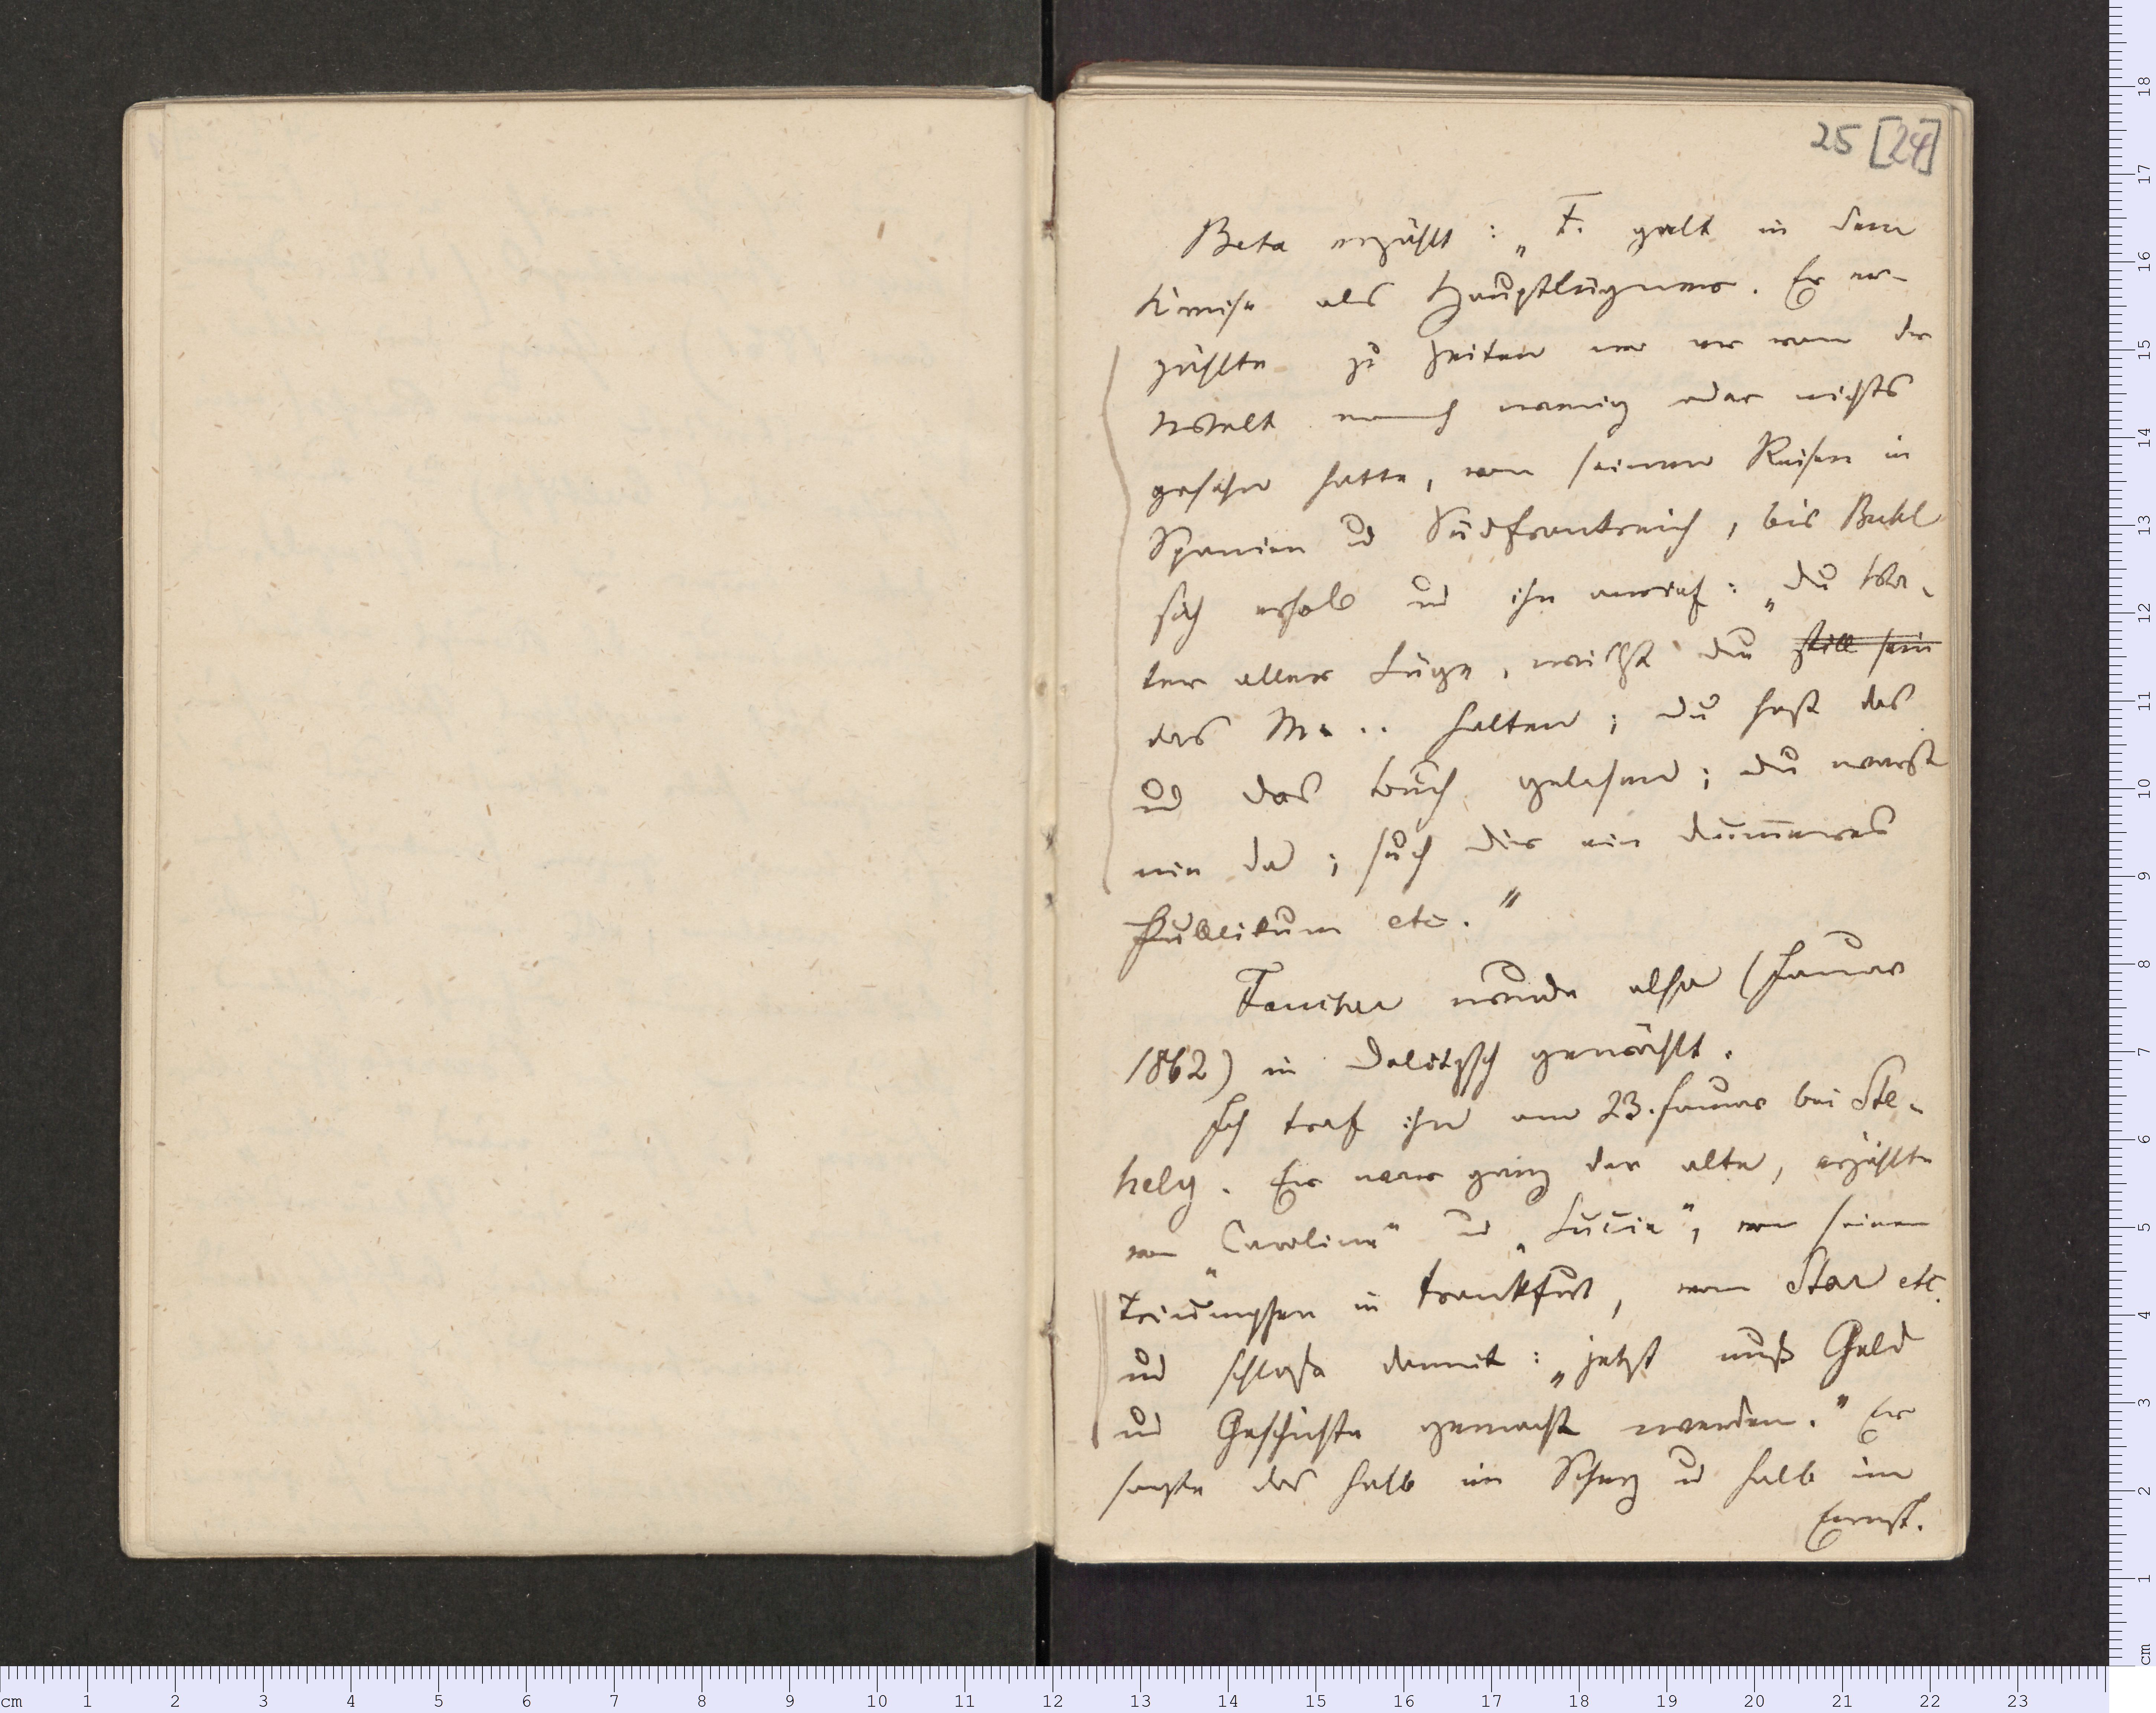 25 [24]
Beta erzählt: „F. galt in dem
Kreise als Hauptlügner. Er er-
zählte zu Zeiten wo er von der
Welt noch wenig oder nichts
gesehn hatte, von seinen Reisen in
Spanien u Südfrankreich, bis Buhl
sich erhob und ihn anrief: „Du Va-
ter aller Lüge, willst Du still sein
das M... halten; Du hast das
und das Buch gelesen; Du warst
nie da; such Dir ein dummeres
Publikum etc."
Faucher wurde also (Januar
1862) in Delitzsch gewählt.
Ich traf ihn am 23. Januar bei Ste-
hely. Er war ganz der alte, erzählte
von „Caroline" und „Lucie", von seinen
Triumphen in Frankfurt, vom Star etc.
und schloß damit: „jetzt muß Geld
und Geschichte gemacht werden." Er
sagte das halb im Scherz u halb im
Ernst.